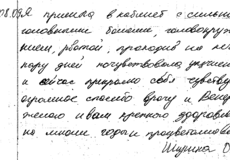 08.09 Я пришла в кабинет с сильными
головными болями, головокруже-
нием, рвотой, проходив на
пару дней почувствовала улучшение
и сейчас прекрасно себя чувствую
огромное спасибо врачу и
желаю и вам крепкого здоровья
на многие годы и процветания